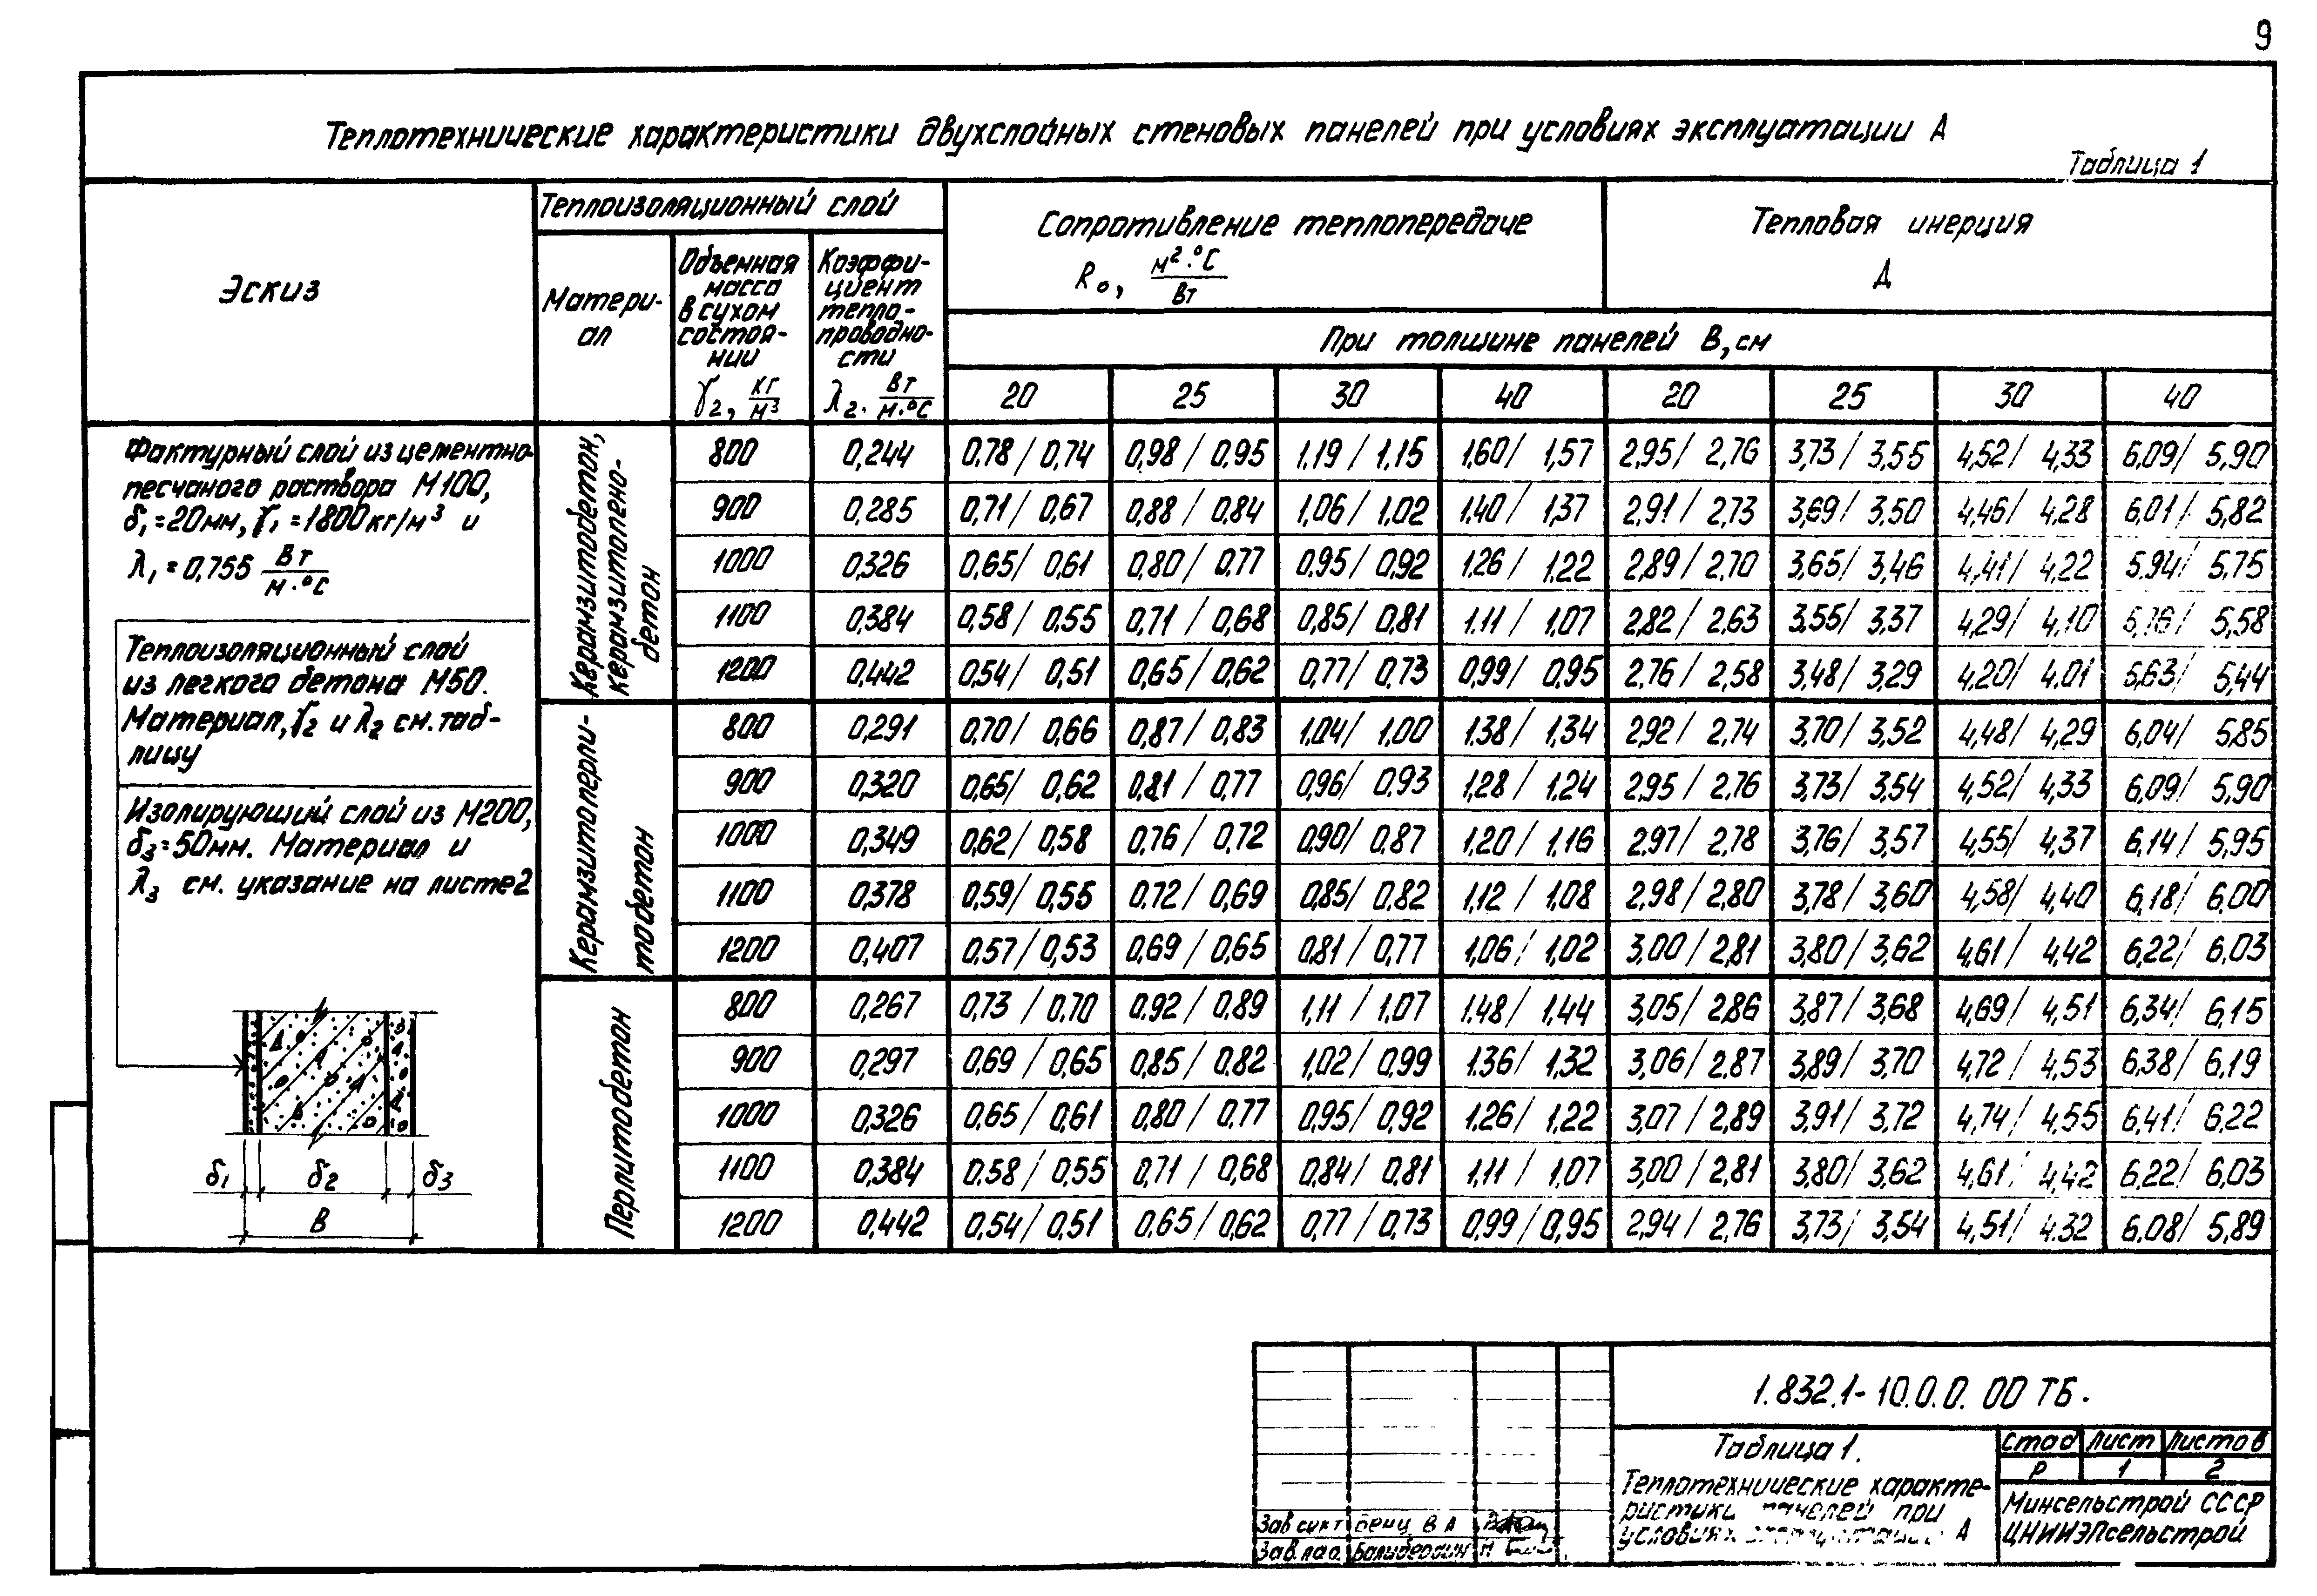 9
Теплотехнические характеристики двухслойных стеновых панелей при условиях эксплуатации А
Таблица 1
Эскиз
Теплоизоляционный слой
Матери-
ал
Объемная
масса
в сухом
состоя-
нии
γ2, кг/м³
Коэффи-
циент
тепло-
проводно-
сти
λ2. Вт/м·°С
Сопротивление теплопередаче
R₀, м²·°С/Вт
Тепловая инерция
Д
При толщине панелей В, см
20 25 30 40 20 25 30 40
Фактурный слой из цементно-
песчаного раствора М100,
δ1=20мм, γ1=1800кг/м³ и
λ1=0,755 Вт/м·°С
Теплоизоляционный слой
из легкого бетона М50.
Материал, γ2 и λ2 см. таб-
лицу
Изолирующий слой из М200,
δ3=50мм. Материал и
λ3 см. указание на листе 2
δ1 δ2 δ3
В
Керамзитобетон,
керамзитопено-
бетон
800 0,244 0.78/0,74 0,98/0,95 1.19/1,15 1,60/1,57 2,95/2,76 3,73/3,55 4,52/4,33 6,09/5,90
900 0,285 0,71/0,67 0,88/0,84 1,06/1,02 1.40/1,37 2,91/2,73 3,69/3,50 4,46/4,28 6,01/5,82
1000 0,326 0,65/0,61 0,80/0,77 0.95/0,92 1.26/1.22 2,89/2,70 3,65/3,46 4,41/4,22 5.94/5,75
1100 0,384 0,58/0.55 0,71/0,68 0,85/0,81 1.11/1,07 2,82/2,63 3,55/3,37 4,29/4,10 5,58
1200 0,442 0,54/0,51 0,65/0,62 0,77/0,73 0,99/0,95 2,76/2,58 3,48/3,29 4.20/4.01 5,63/5,44
Керамзитоперли-
тобетон
800 0,291 0,70/0,66 0,87/0,83 1.04/1,00 1.38/1,34 2,92/2,74 3,70/3,52 4,48/4,29 6,04/5,85
900 0,320 0,65/0,62 0,81/0,77 0,96/0,93 1,28/1,24 2,95/2,76 3,73/3,54 4,52/4,33 6,09/5,90
1000 0,349 0,62/0,58 0,76/0,72 0,90/0,87 1,20/1,16 2,97/2,78 3,76/3,57 4,55/4,37 6,14/5,95
1100 0,378 0,59/0,55 0.72/0,69 0,85/0.82 1,12/1,08 2,98/2,80 3,78/3,60 4,58/4,40 6,18/6,00
1200 0,407 0,57/0,53 0,69/0,65 0,81/0,77 1,06/1,02 3,00/2,81 3,80/3,62 4,61/4,42 6,22/6,03
Перлитобетон
800 0,267 0,73/0,70 0.92/0,89 1,11/1,07 1.48/1,44 3,05/2,86 3,87/3,68 4,69/4,51 6,34/6,15
900 0,297 0,69/0,65 0,85/0,82 1,02/0,99 1.36/1,32 3,06/2.87 3,89/3,70 4,72/4,53 6,38/6,19
1000 0,326 0,65/0,61 0,80/0,77 0,95/0,92 1.26/1,22 3,07/2,89 3,91/3,72 4,74/4,55 6,41/6,22
1100 0,384 0.58/0,55 0,71/0,68 0,84/0,81 1,11/1,07 3,00/2,81 3,80/3,62 4,61/4,42 6,22/6,03
1200 0,442 0,54/0,51 0,65/0,62 0,77/0,73 0,99/0,95 2,94/2,76 3,73/3,54 4,51/4.32 6.08/5,89
1.832.1-10.0.0.00 ТБ.
Таблица 1.
Теплотехнические характе-
ристики панелей при
условиях А
Стад Лист Листов
Р 1 2
Минсельстрой СССР
ЦНИИЭПсельстрой
Зав
Зав.лаб.